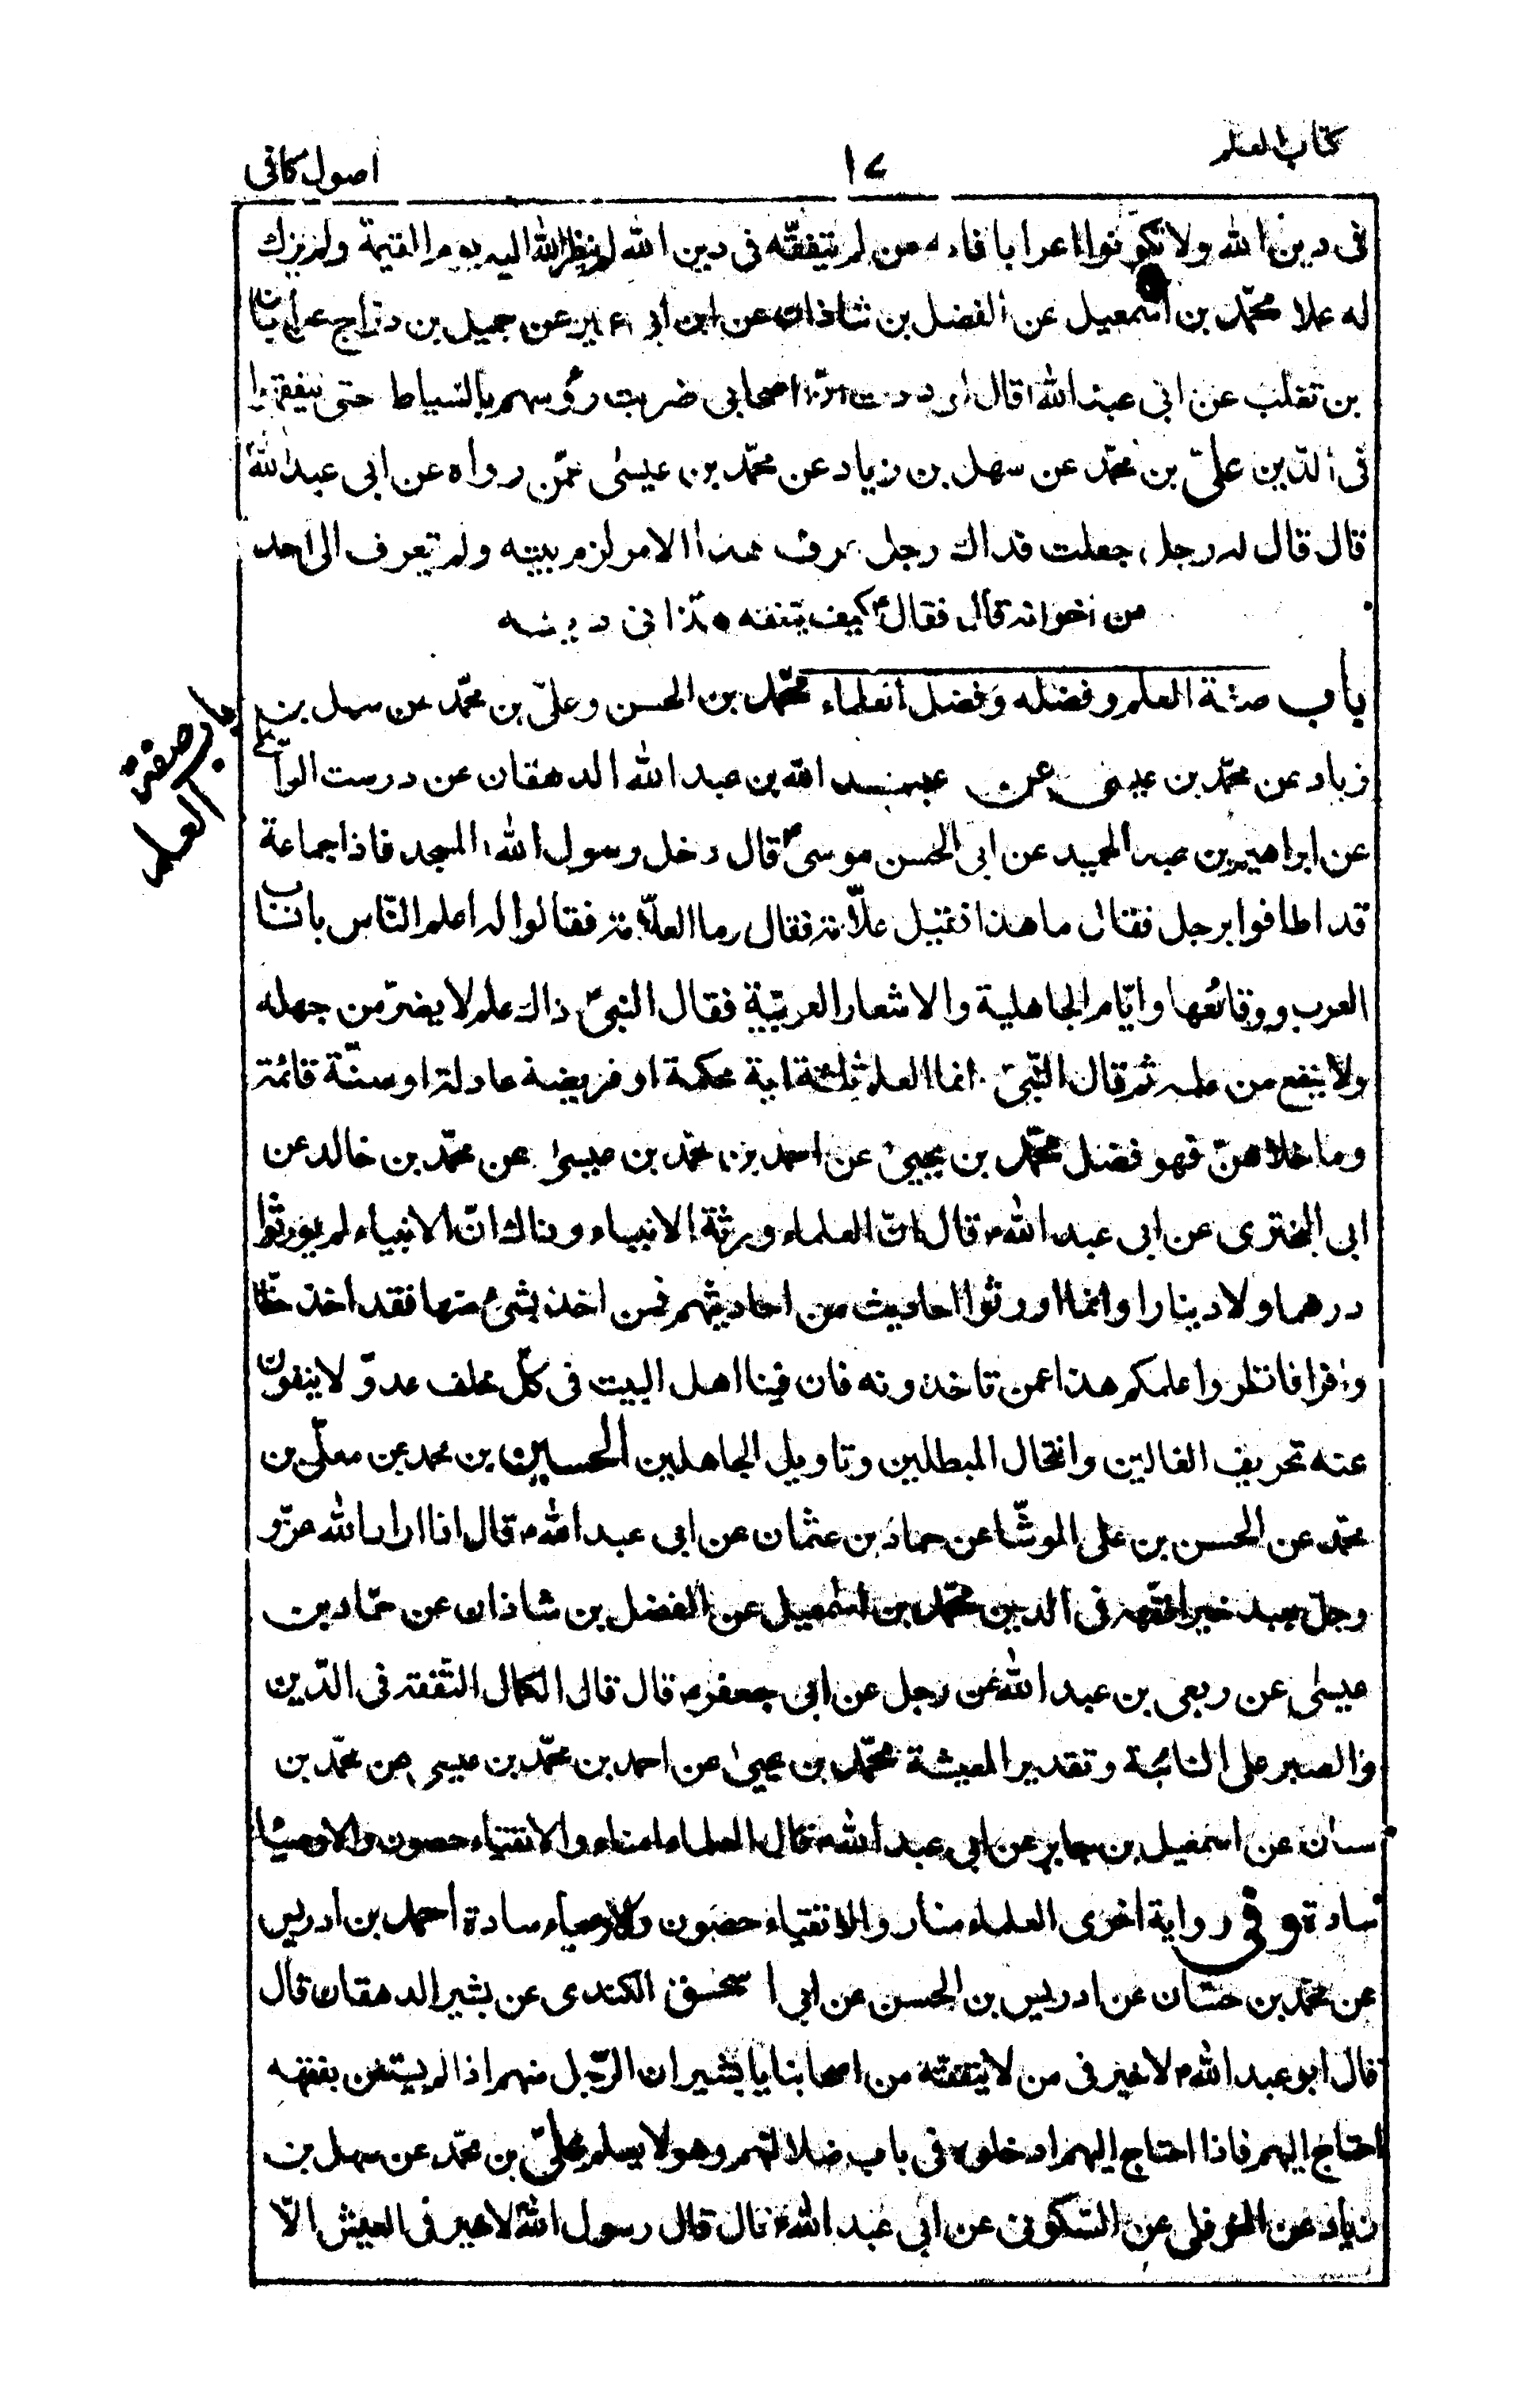 كتاب العلم
١٧
اصول كافى
فى دين الله ولا تكونوا اعرابا فانه من لم يتفقّه فى دين الله لم ينظر الله اليه يوم القيمة ولم يزك
له عملا محمّد بن اسمعيل عن الفضل بن شاذان عن ابن ابى عمير عن جميل بن درّاج عن ابان
بن تغلب عن ابى عبد الله قال لوددت انّ اصحابى ضربت رؤسهم بالسّياط حتى يتفقهوا
فى الدّين علىّ بن محمّد عن سهل بن زياد عن محمّد بن عيسى عمّن رواه عن ابى عبد الله
قال قال له رجل جعلت فداك رجل عرف هذا الامر لزم بيته ولم يتعرف الى احد
من اخوانه قال فقال كيف يتفقه هذا فى دينه
باب صفة العلم وفضله وفضل العلماء محمّد بن الحسن وعلىّ بن محمّد عن سهل بن
زياد عن محمّد بن عيسى عن عبيد الله بن عبد الله الدهقان عن درست الواسطى
عن ابراهيم بن عبد الحميد عن ابى الحسن موسىؑ قال دخل رسول الله المسجد فاذا جماعة
قد اطافوا برجل فقال ما هذا فقيل علّامة فقال وما العلّامة فقالوا له اعلم النّاس بانساب
العرب ووقائعها وايّام الجاهلية والاشعار العربيّة فقال النبىّ ذاك علم لا يضرّ من جهله
ولا ينفع من علمه ثم قال النّبىّ انما العلم ثلثة اية محكمة او فريضة عادلة او سنّة قائمة
وما خلاهنّ فهو فضل محمّد بن يحيى عن احمد بن محمّد بن عيسى عن محمّد بن خالد عن
ابى البخترى عن ابى عبد اللهؑ قال انّ العلماء ورثة الانبياء وذاك انّ الانبياء لم يورثوا
درهما ولا دينارا وانما اورثوا احاديث من احاديثهم فمن اخذ بشئ منها فقد اخذ حظّا
وافرا فانظروا علمكم هذا عمن تاخذونه فان فينا اهل البيت فى كلّ خلف عدولا ينفون
عنه تحريف الغالين وانتحال المبطلين وتاويل الجاهلين الحسين بن محمد عن معلّى بن
محمّد عن الحسن بن على الوشّا عن حماد بن عثمان عن ابى عبد اللهؑ قال اذا اراد الله عزّ و
وجلّ بعبد خيرا فقّهه فى الدين محمّد بن اسمعيل عن الفضل بن شاذان عن حمّاد بن
عيسى عن ربعى بن عبد الله عن رجل عن ابى جعفرؑ قال قال الكمال التّفقه فى الدّين
والصبر على النائبة وتقدير المعيشة محمّد بن يحيى عن احمد بن محمّد بن عيسى عن محمّد بن
سنان عن اسمعيل بن جابر عن ابى عبد اللهؑ قال العلماء امناء والاتقياء حصون والاوصيا
سادة وفى رواية اخرى العلماء منار والاتقياء حصون والاوصياء سادة احمد بن ادريس
عن محمّد بن حسّان عن ادريس بن الحسن عن ابى اسحق الكندى عن بشير الدهقان قال
قال ابو عبد اللهؑ لا خير فى من لا يتفقّه من اصحابنا يا بشير ان الرّجل منهم اذا لم يستغن بفقهه
احتاج اليهم فاذا احتاج اليهم ادخلوه فى باب ضلالتهم وهو لا يعلم علىّ بن محمّد عن سهل بن
زياد عن النوفلى عن السّكونى عن ابى عبد اللهؑ قال قال رسول اللهؐ لا خير فى العيش الّا
باب صفة
العلم